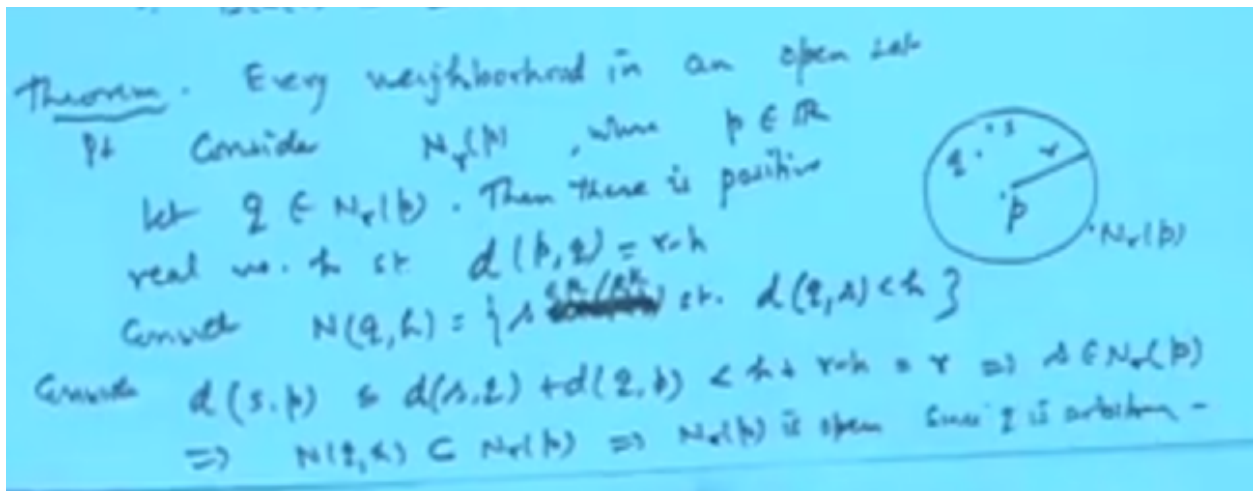 Theorem. Every neighborhood in an open set
Pf Consider Nr(p), where p ∈ R
let q ∈ Nr(p). Then there is positive
real no. h st d(p,q) = r-h
Consider N(q,h) = { s st. d(q,s) < h }
Consider d(s.p) ≤ d(s,q) + d(q,p) < h + r-h = r => s ∈ Nr(p)
=> N(q,h) ⊂ Nr(p) => Nr(p) is open Since q is arbitrary -
s
q
r
p
Nr(p)